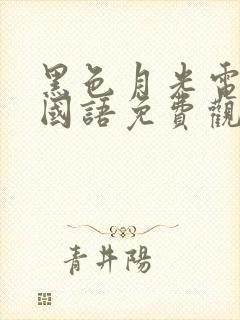 黑色月光電
國語免費觀
青井陽